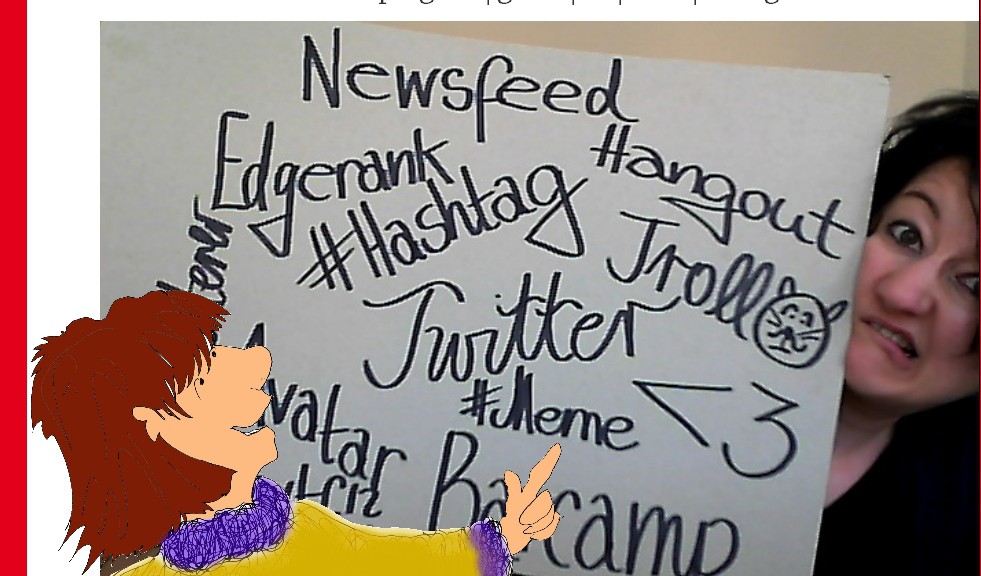 Newsfeed
Edgerank
#Hangout
#Hashtag
Troll
Twitter
#Meme
<3
Avatar
Barcamp